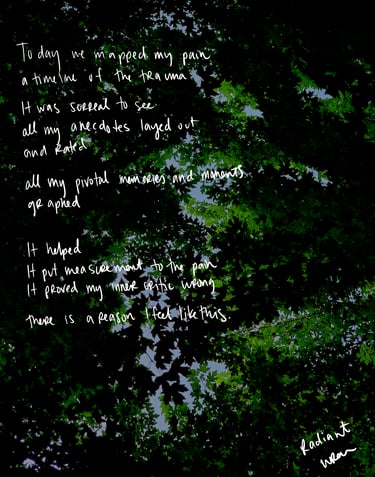 Today we mapped my pain
a timeline of the trauma
It was surreal to see
all my anecdotes layed out
and rated
all my pivotal memories and moments
graphed
It helped
It put measurement to the pain
It proved my inner critic wrong
there is a reason I feel like this.
Radiant
wren